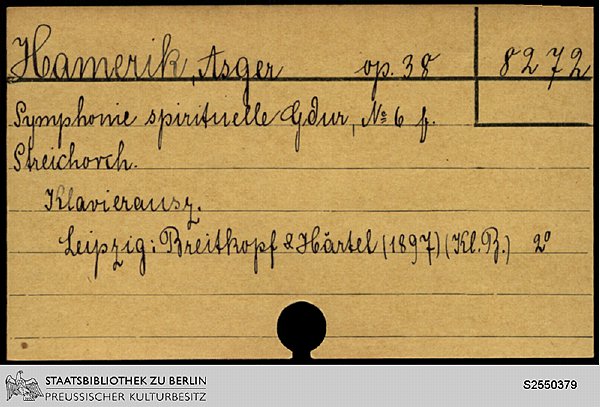 Hamerik, Asger op. 38 8272
Symphonie spirituelle Gdur, № 6 f.
Streichorch.
Klavierausz.
Leipzig: Breitkopf & Härtel (1897) (Kl. B.) 2°
STAATSBIBLIOTHEK ZU BERLIN
PREUSSISCHER KULTURBESITZ
S2550379